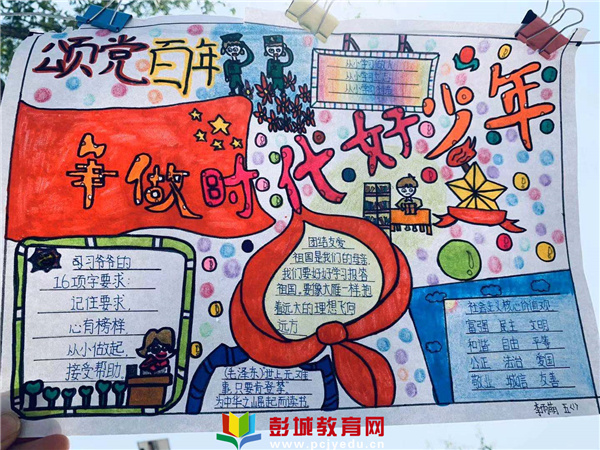 颂党百年
从小学习做人
争做时代好少年
习爷爷的
16项字要求:
记住要求,
心有榜样,
从小做起,
接受帮助。
团结友爱
祖国是我们的母亲
我们要好好学习报答
祖国,要像大雁一样,抱
着远大的理想飞向
远方
(毛泽东)世上无难
事,只要肯登攀
为中华之崛起而读书
社会主义核心价值观
富强 民主 文明
和谐 自由 平等
公正 法治 爱国
敬业 诚信 友善
五(1)
彭城教育网
www.pcjyedu.cn